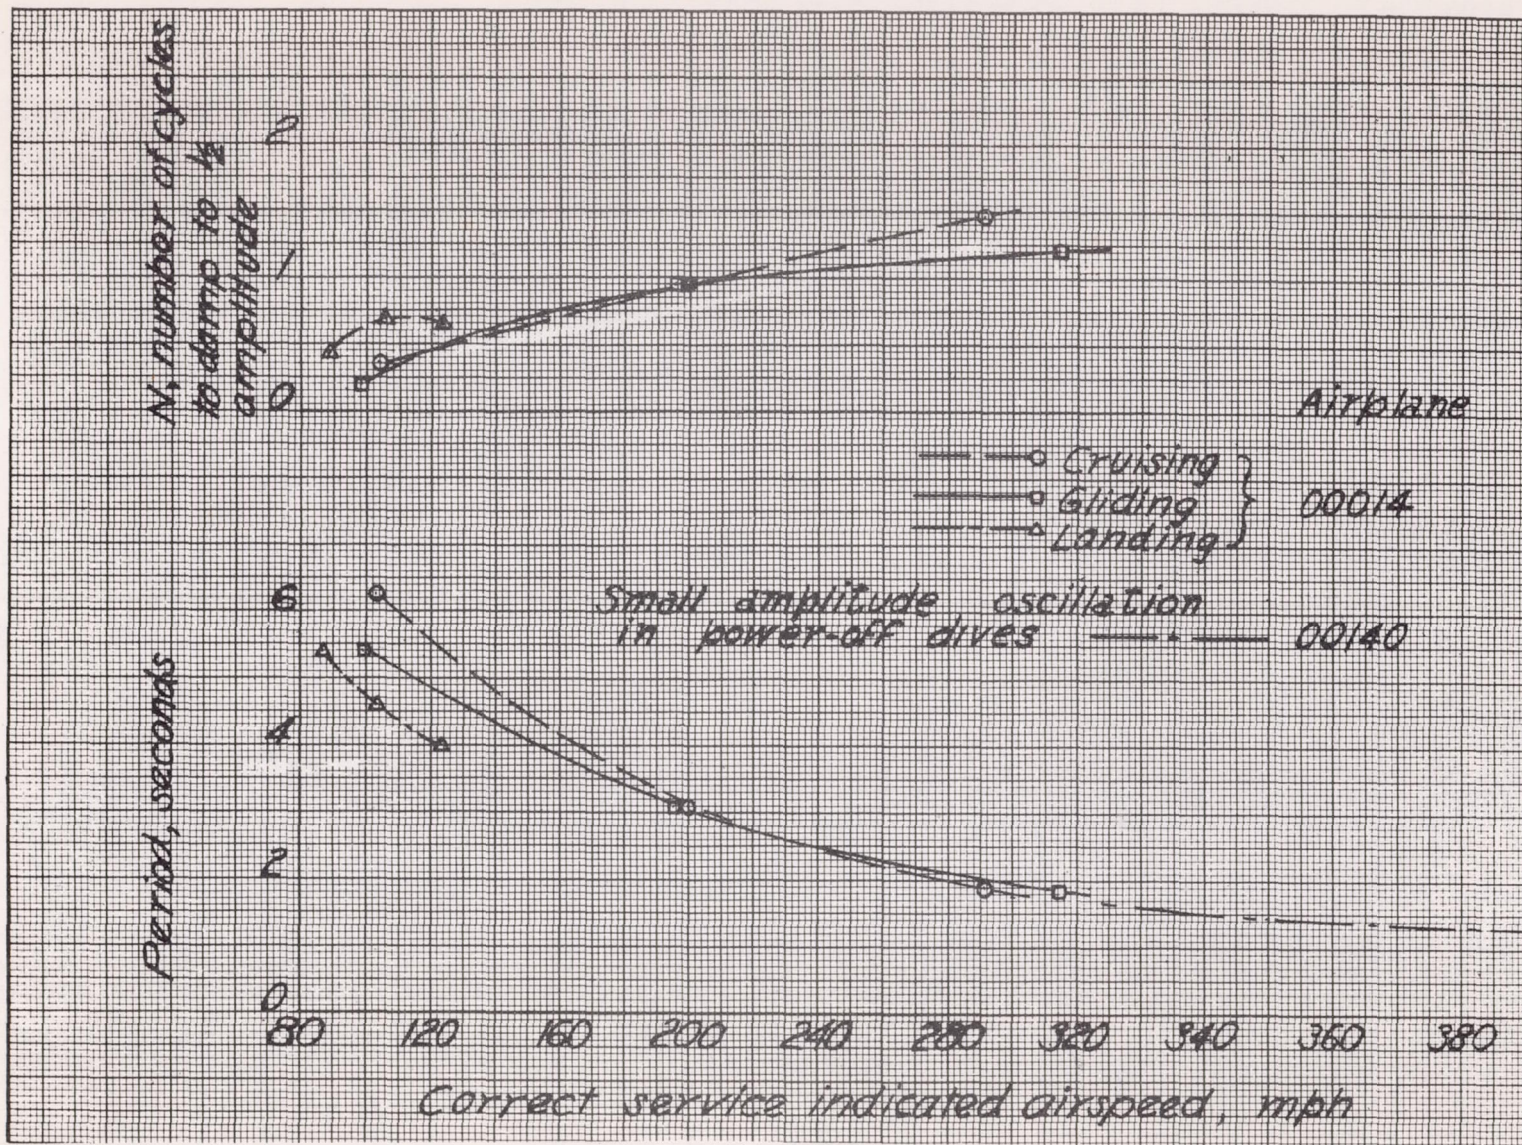 N, number of cycles
to damp to 1/2
amplitude
2
1
0
Airplane
Cruising
Gliding
Landing
00014
Small amplitude oscillation
in power-off dives
00140
Period, seconds
6
4
2
0
80 120 160 200 240 280 320 340 360 380
Correct service indicated airspeed, mph